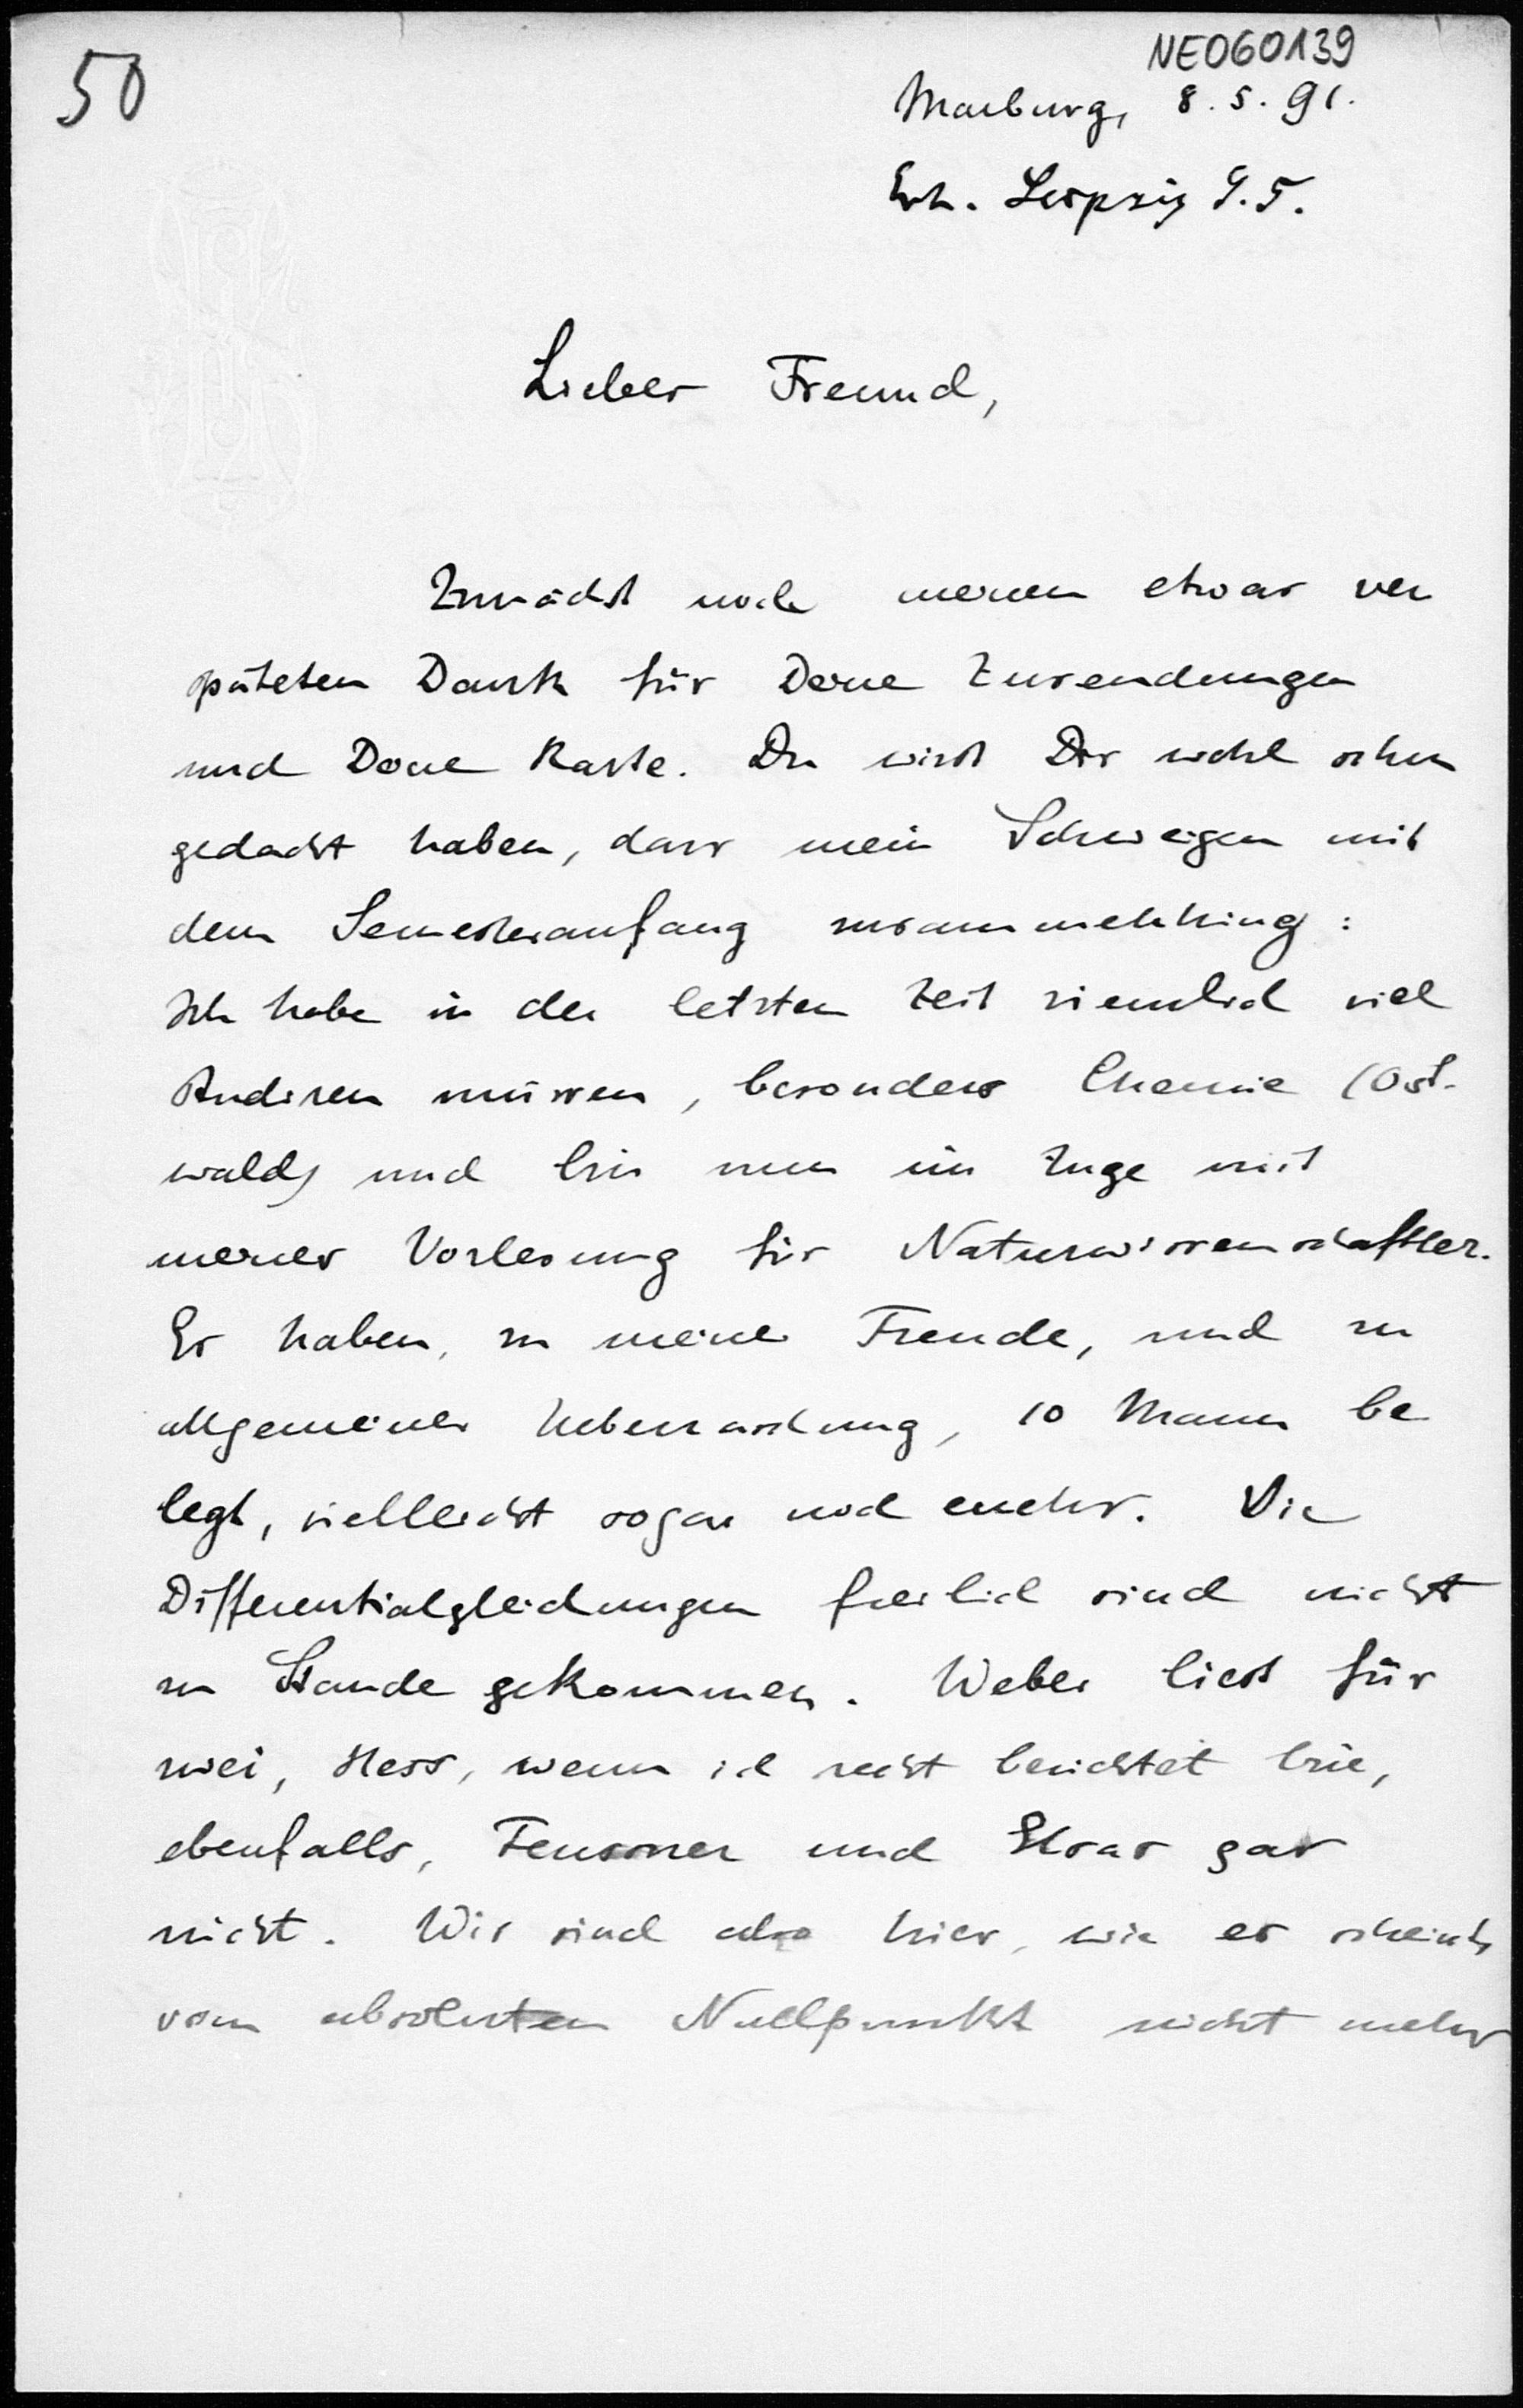 50
NE060139
Marburg, 8. 5. 91.
Erh. Leipzig 9.5.
Lieber Freund,
Zunächst noch meinen etwas ver
späteten Dank für Deine Zusendungen
und Deine Karte. Du wirst Dir wohl schon
gedacht haben, dass mein Schweigen mit
dem Semesteranfang zusammenhing:
Ich habe in der letzten Zeit ziemlich viel
studiren müssen, besonders Chemie (Ost-
wald) und bin nun im Zuge mit
meiner Vorlesung für Naturwissenschaftler.
Es haben, zu meiner Freude, und zu
allgemeiner Ueberraschung, 10 Mann be
legt, vielleicht sogar noch mehr. Die
Differentialgleichungen freilich sind nicht
zu Stande gekommen. Weber liest für
zwei, Hess, wenn ich recht berichtet bin,
ebenfalls, Feussner und Elsas gar
nicht. Wir sind also hier, wie es scheint,
vom absoluten Nullpunkt nicht mehr